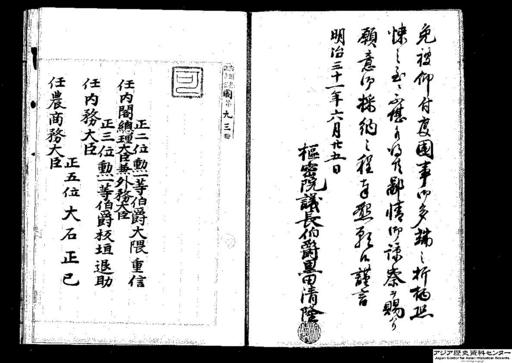 免被仰付度國事御多端之折柄恐
悚之至ニ不堪候得共鄙情御諒察ヲ賜リ
願意御採納之程奉懇願候謹言
明治三十一年六月廿五日
樞密院議長伯爵黒田清隆
九三
可
正二位勲一等伯爵大隈重信
任内閣總理大臣兼外務大臣
正三位勲一等伯爵板垣退助
任内務大臣
正五位大石正巳
任農商務大臣
アジア歴史資料センター
Japan Center for Asian Historical Records